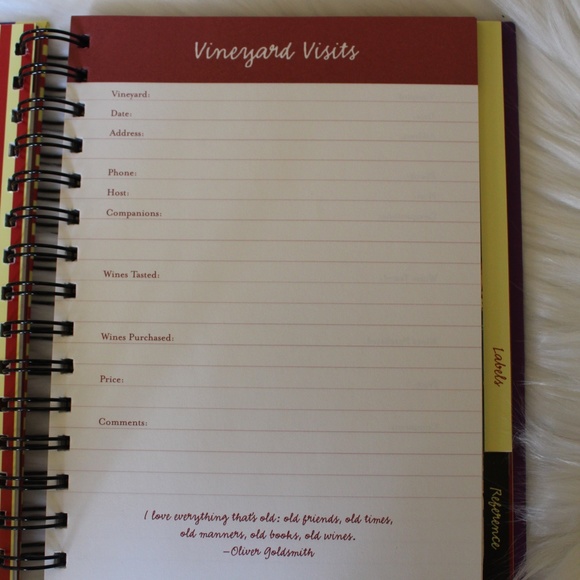 Vineyard Visits
Vineyard:
Date:
Address:
Phone:
Host:
Companions:
Wines Tasted:
Wines Purchased:
Price:
Comments:
I love everything that's old: old friends, old times,
old manners, old books, old wines.
—Oliver Goldsmith
Labels
Reference